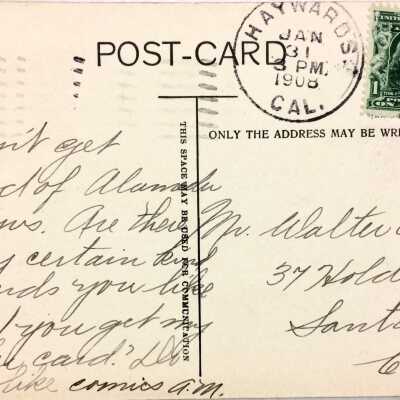 POST-CARD
HAYWARDS
JAN
31
3 PM
1908
CAL.
1
ONE
THIS SPACE MAY BE USED FOR COMMUNICATION
ONLY THE ADDRESS MAY BE WRI
n't get
d of Alameda
ws. Are there
y certain kind
ds you like
d you get my
card? Do
like comics A.M.
Mr. Walter
37 Hold
Santa
C